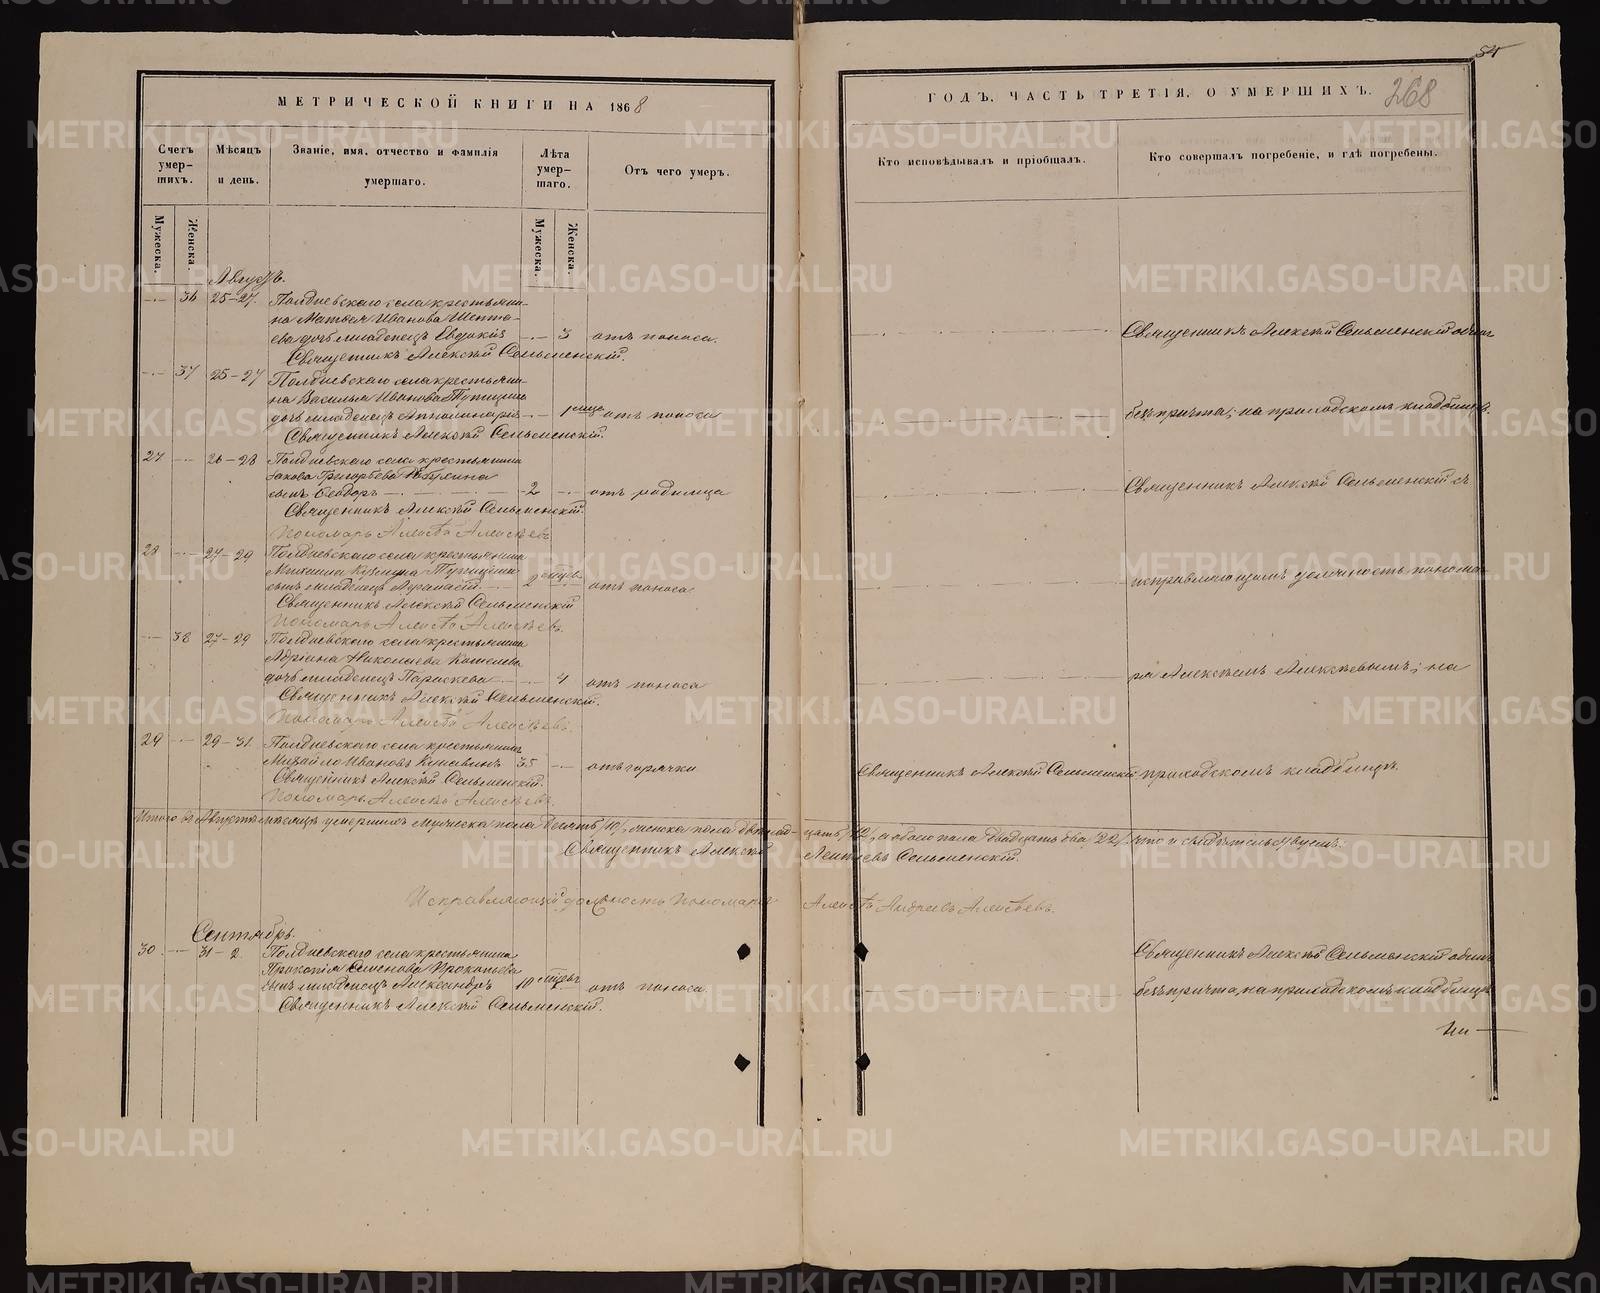 МЕТРИЧЕСКОЙ КНИГИ НА 1868
ГОДЪ, ЧАСТЬ ТРЕТІЯ, О УМЕРШИХЪ.
268
54
Счетъ умер-шихъ.
Мѣсяцъ и день.
Званіе, имя, отчество и фамилія умершаго.
Лѣта умер-шаго.
Отъ чего умеръ.
Кто исповѣдывалъ и пріобщалъ.
Кто совершалъ погребеніе, и гдѣ погребены.
Мужеска.
Женска.
Мужеска.
Женска.
Августъ.
36 25–27. Полдневскаго села крестьяни-
на Матвея Иванова
ева дочь младенецъ Евдокія 3 отъ поноса.
Священникъ Алексѣй Сельменскій.
Священникъ Алексѣй Сельменскій одинъ
37 25–27 Полдневскаго села крестьяни-
на Василья Иванова Тупицина
дочь младенецъ Апполинарія отъ поноса
Священникъ Алексѣй Сельменскій.
безъ причта; на приходскомъ кладбищѣ.
27 26–28 Полдневскаго села крестьянина
Іакова Григорьева
сынъ Ѳеодоръ 2 отъ родимца
Священникъ Алексѣй Сельменскій.
Пономарь Алексѣй Алексѣевъ
Священникъ Алексѣй Сельменскій съ
28 27–29 Полдневскаго села крестьянина
Михаила Козмина Тупицина
сынъ младенецъ Аѳанасій 2 отъ поноса
Священникъ Алексѣй Сельменскій
Пономарь Алексѣй Алексѣевъ.
исправляющимъ должность понома-
38 27–29 Полдневскаго села крестьянина
Адріана Николаева Кошелева
дочь младенецъ Параскева 4 отъ поноса
Священникъ Алексѣй Сельменскій.
Пономарь Алексѣй Алексѣевъ
ря Алексѣемъ Алексѣевымъ; на
29 29–31. Полдневскаго села крестьянинъ
Михайло Ивановъ 35 отъ горячки
Священникъ Алексѣй Сельменскій.
Пономарь Алексѣй Алексѣевъ.
Священникъ Алексѣй Сельменскій
приходскомъ кладбищѣ.
Итого въ Августѣ мѣсяцѣ умершихъ Мужеска пола десять /10/, женска пола двѣнад-цать /12/, а обоего пола двадцать два /22/. что и свидѣтельствуемъ:
Священникъ Алексѣй Леонтьевъ Сельменскій.
Исправляющій должность Пономаря Алексѣй Андреевъ Алексѣевъ.
Сентябрь.
30 31–2 Полдневскаго села крестьянина
Прокопія Семенова Прокопьева
сынъ младенецъ Александръ 10 отъ поноса.
Священникъ Алексѣй Сельменскій.
Священникъ Алексѣй Сельменскій одинъ
безъ причта, на приходскомъ кладбищѣ
METRIKI.GASO-URAL.RU